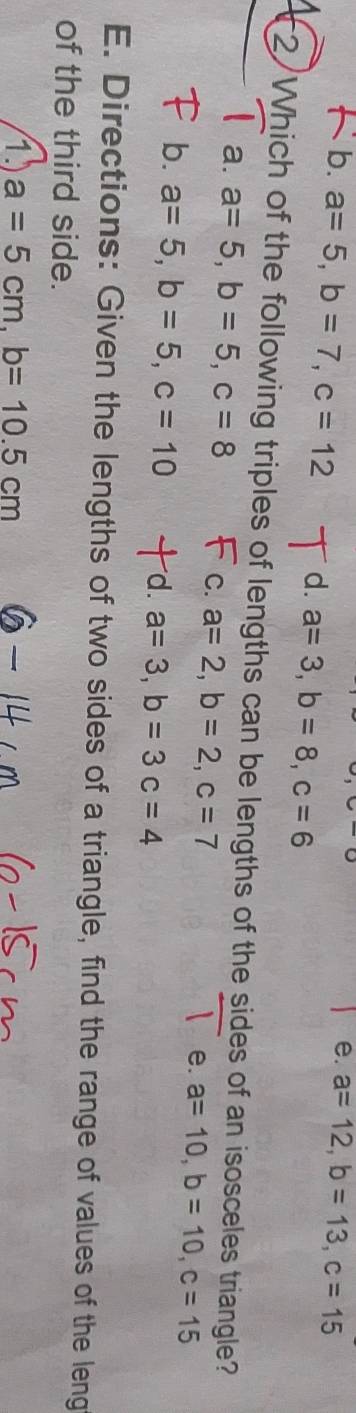 F b. a= 5, b = 7, c = 12 T d. a= 3, b = 8, c = 6 e. a= 12, b = 13, c = 15
2 Which of the following triples of lengths can be lengths of the sides of an isosceles triangle?
T a. a= 5, b = 5, c = 8 F c. a= 2, b = 2, c = 7 T e. a= 10, b = 10, c = 15
F b. a= 5, b = 5, c = 10 T d. a= 3, b = 3 c = 4
E. Directions: Given the lengths of two sides of a triangle, find the range of values of the leng
of the third side.
1. a = 5 cm, b= 10.5 cm 6 - 14 cm 6 - 15 cm